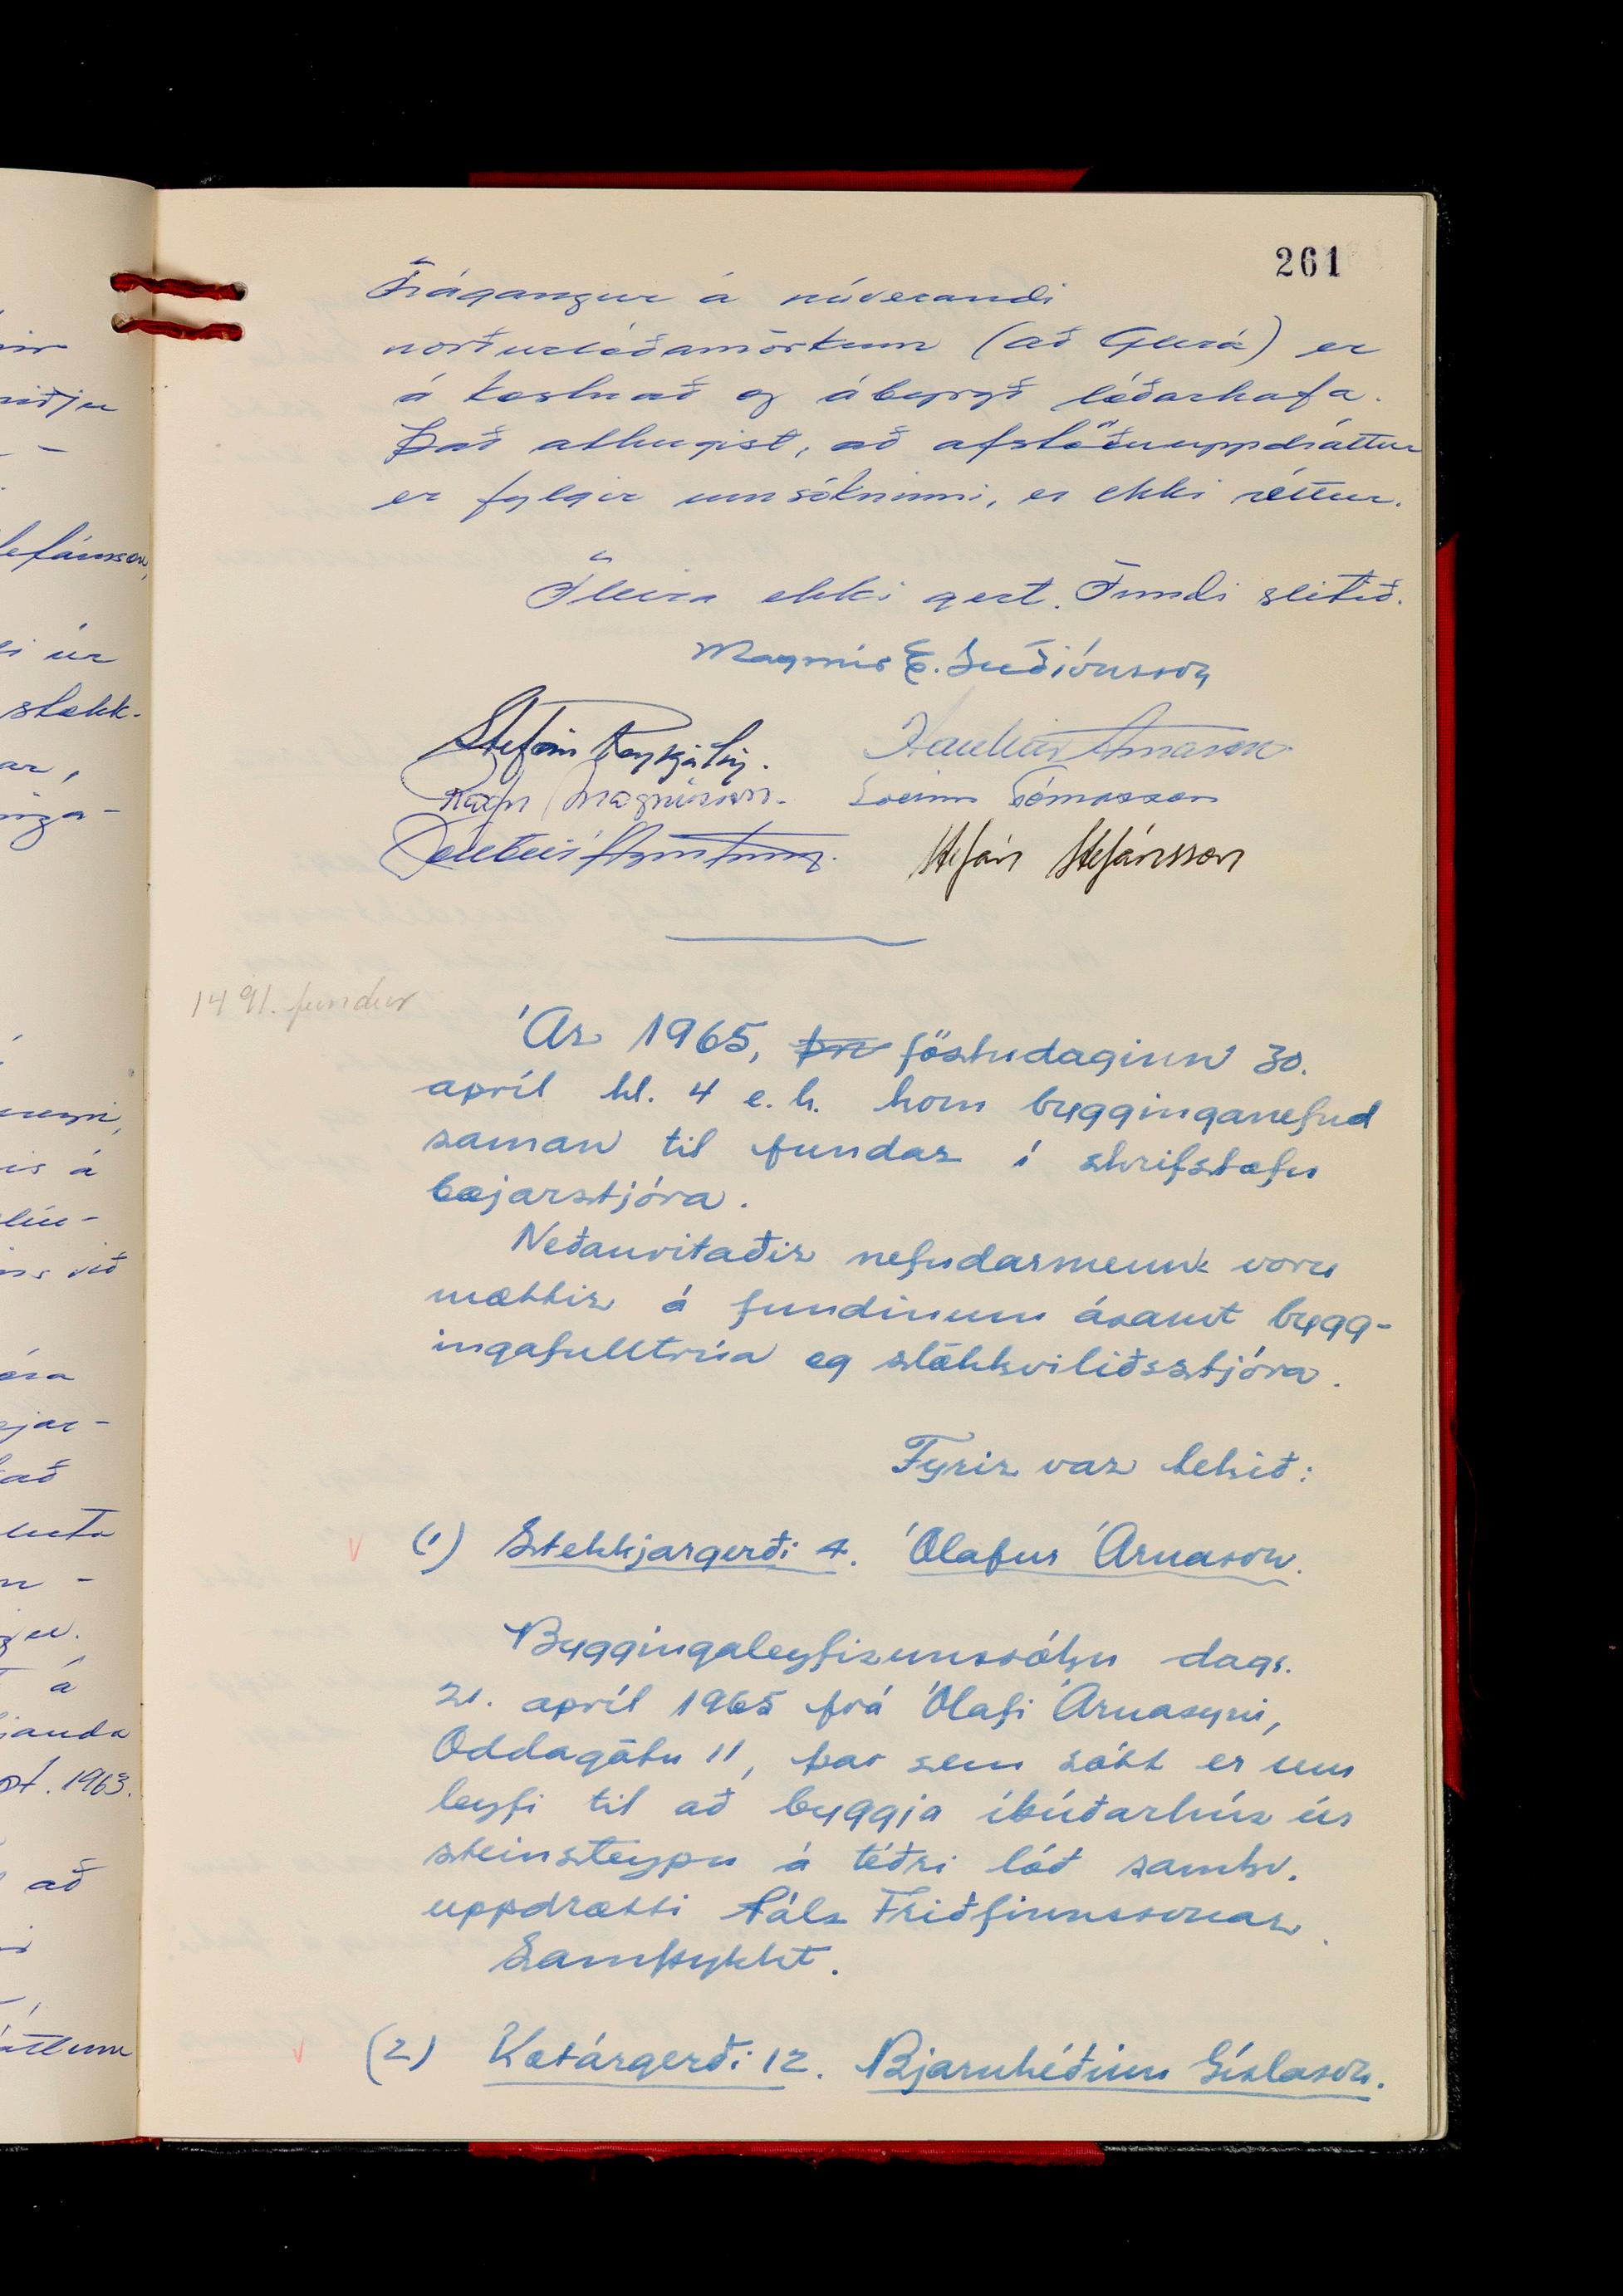 261
Frágangur á núverandi
norðurlóðamörkum (að Glerá) er
á kostnað og ábyrgð lóðarhafa.
Það athugist, að afstöðuuppdráttur
er fylgir umsókninni, er ekki réttur.
Fleira ekki gert. Fundi slitið.
Magnús E. Guðjónsson
Stefán Reykjalín. Haukur Árnason
Rafn Magnússon. Sveinn Tómasson
Stefán Stefánsson
1491. fundur
Ár 1965, föstudaginn 30.
apríl kl. 4 e.h. kom bygginganefnd
saman til fundar í skrifstofu
bæjarstjóra.
Neðanritaðir nefndarmenn voru
mættir á fundinum ásamt bygg-
ingafulltrúa og slökkviliðsstjóra.
Fyrir var tekið:
v (1) Stekkjargerði 4. Ólafur Árnason.
Byggingaleyfisumssókn dags.
21. apríl 1965 frá Ólafi Árnasyni,
Oddagötu 11, þar sem sótt er um
leyfi til að byggja íbúðarhús úr
steinsteypu á téðri lóð samkv.
uppdrætti Páls Friðfinnssonar.
Samþykkt.
v (2) Kotárgerði 12. Bjarnhéðinn Gíslason.
siðju
stefánsson,
úr
stekk-
ar,
inga-
is á
við
óra
að
á
1963.
að